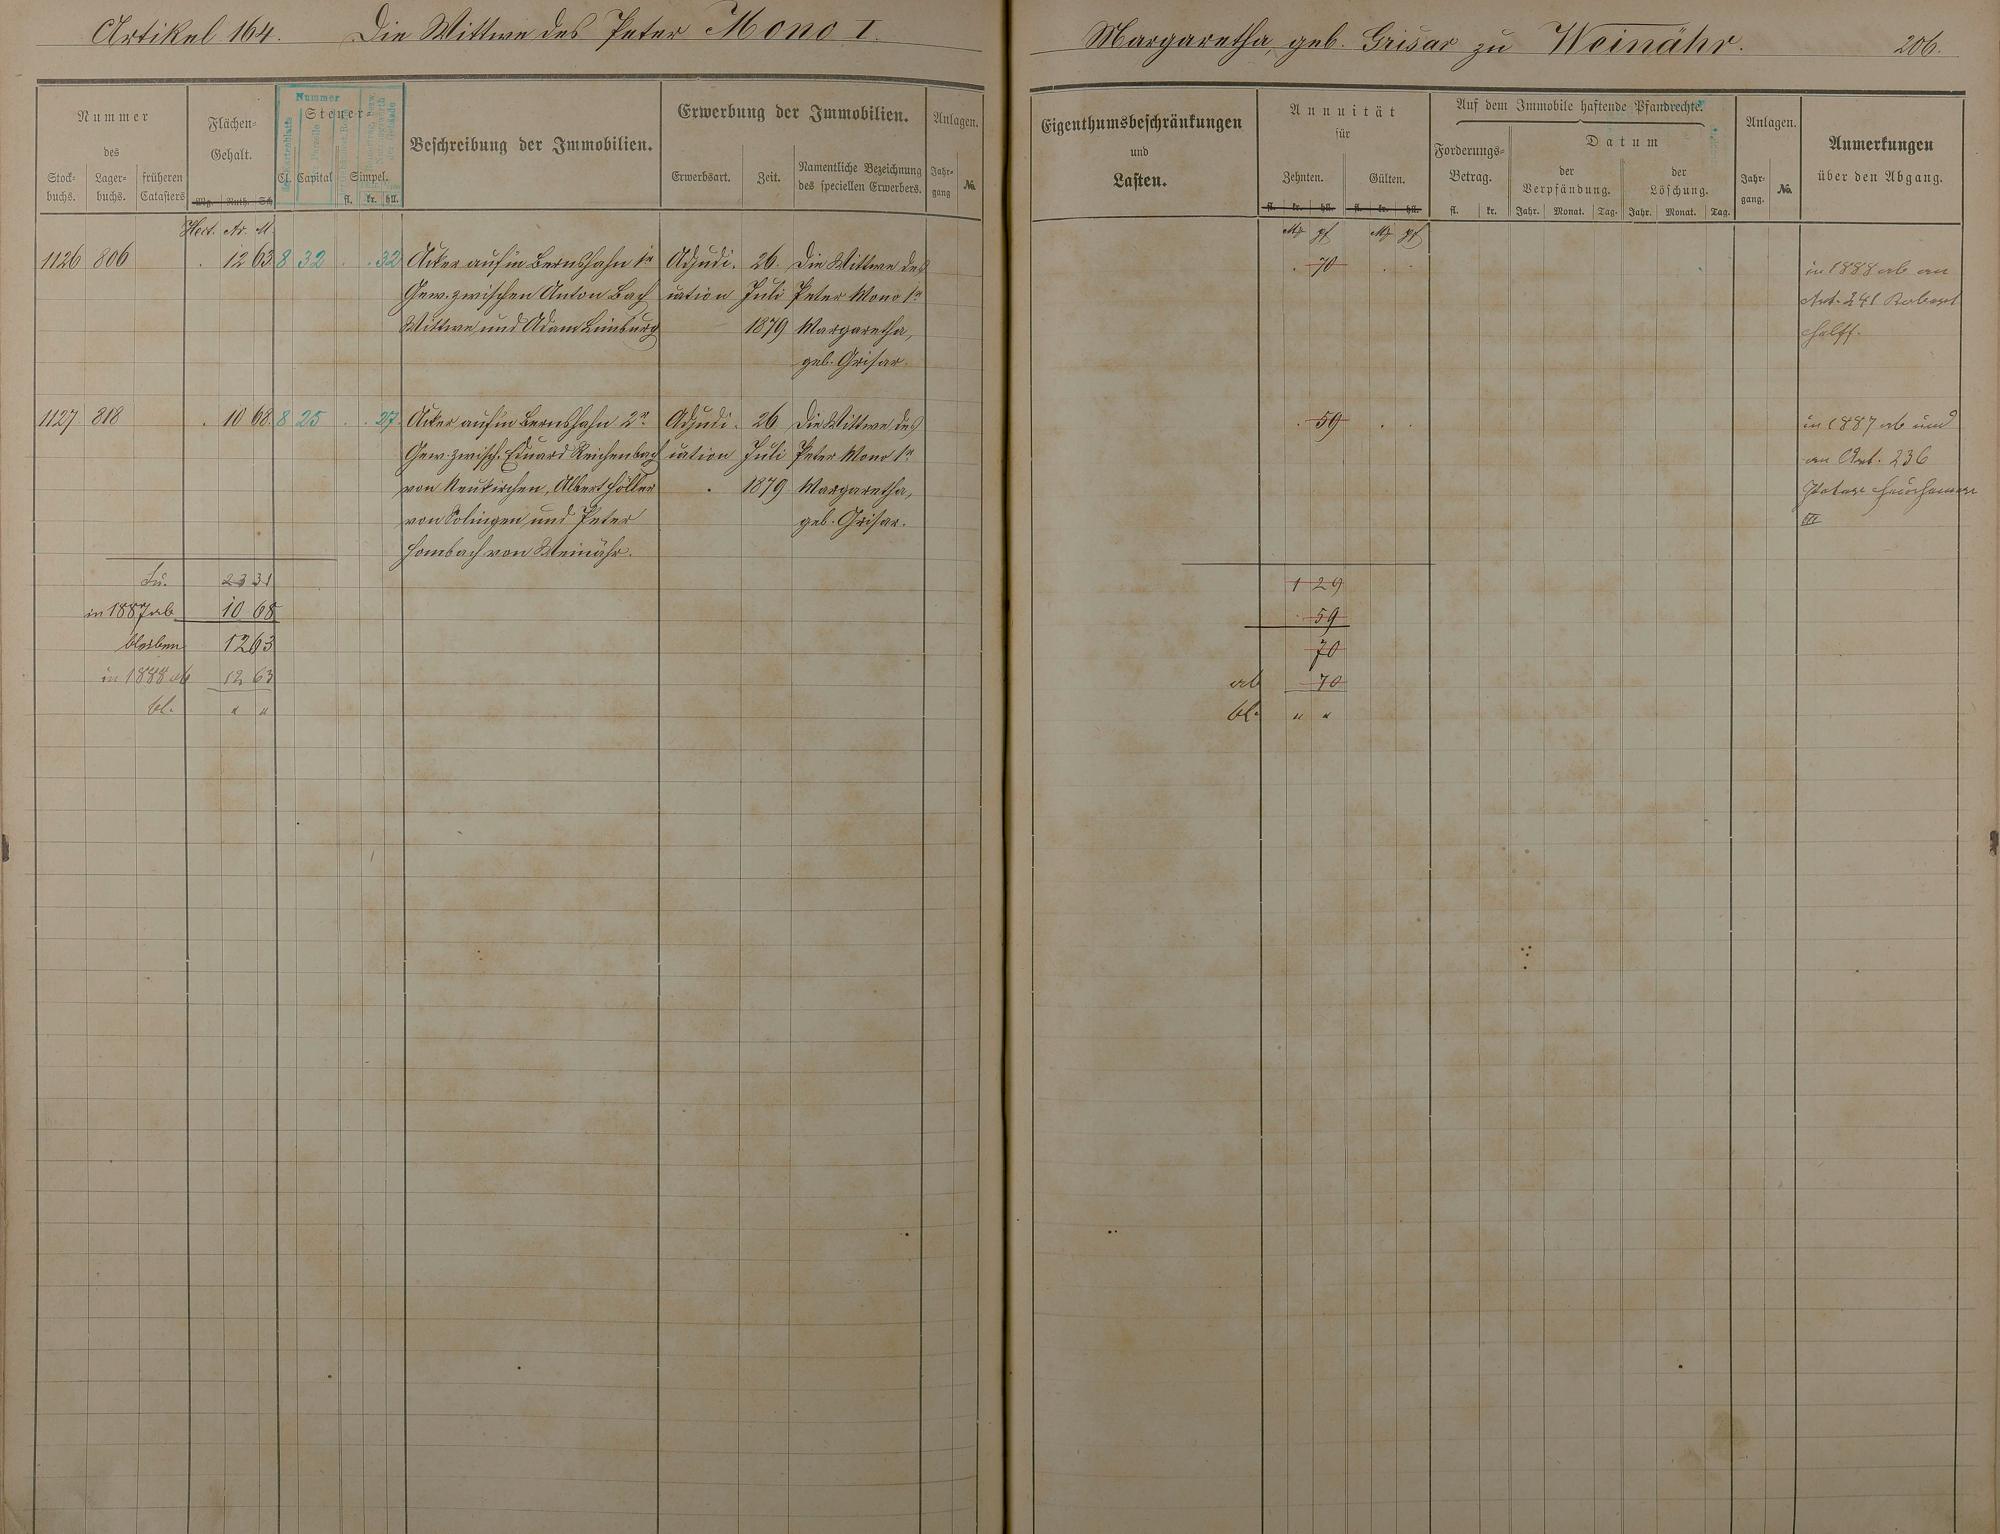 Artikel 164. Die Wittwe des Peter Mono I.
Margaretha, geb. Grisar zu Weinähr. 206.
Nummer
des
Stock-
buchs.
Lager-
buchs.
früheren
Catasters
Flächen-
Gehalt.
Mg. Ruth. Sch
Steuer-
Cl. Capital Simpel.
fl. kr. hll.
Nummer
Parzelle
Beschreibung der Immobilien.
Erwerbung der Immobilien.
Erwerbsart. Zeit.
Namentliche Bezeichnung
des speciellen Erwerbers.
Anlagen.
Jahr-
gang
No.
Eigenthumsbeschränkungen
und
Lasten.
Annuität
für
Zehnten. Gülten.
fl. kr. hll. fl. kr. hll.
Auf dem Immobile haftende Pfandrechte.
Forderungs-
Betrag.
fl. kr.
Datum
der
Verpfändung.
Jahr. Monat. Tag.
der
Löschung.
Jahr. Monat. Tag.
Anlagen.
Jahr-
gang.
No.
Anmerkungen
über den Abgang.
Hect. Ar. M.
M pf M pf
1126 806 . 12 63 8 32 . . 32 Acker auf'm Bernshahn 1r Adjudi- 26. Die Wittwe des
Gew. zwischen Anton Bach cation Juli Peter Mono 1r
Wittwe und Adam Linsburg 1879 Margaretha,
geb. Grisar.
. 70 . .
in 1888 ab an
Art. 241 Robert
Halff.
1127 818 . 10 68. 8 25 . . 27. Acker auf'm Bernshahn 2r Adjudi- 26 Die Wittwe des
Gew. zwisch. Eduard Reichenbach cation Juli Peter Mono 1r
von Neukirchen, Albert Höller . 1879 Margaretha,
von Solingen und Peter geb. Grisar.
Hombach von Weinähr.
. 59 . .
in 1887 ab und
an Art. 236
Peter
III
Su. 23 31
in 1887 ab 10 68
bleiben 12 63
in 1888 ab 12 63
bl. " "
1 29
. 59
70
ab 70
bl. " "